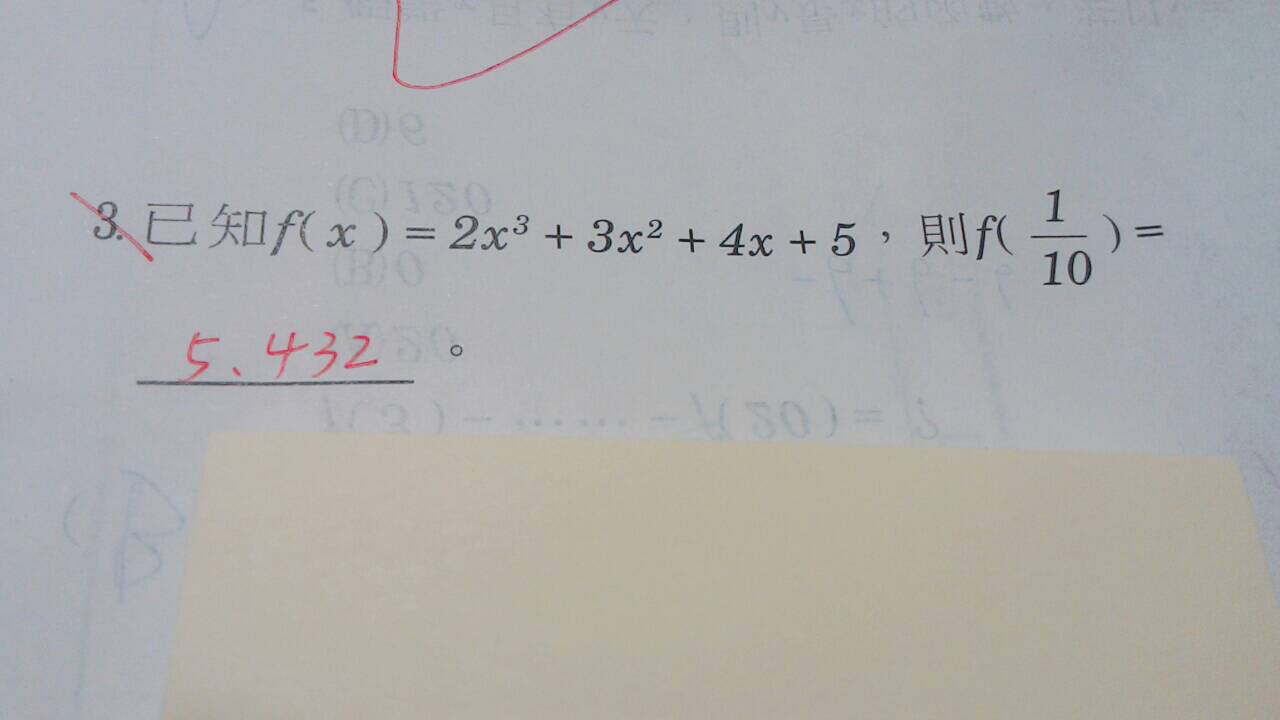 3. 已知f(x)=2x³+3x²+4x+5,則f(1/10)=
5.432。